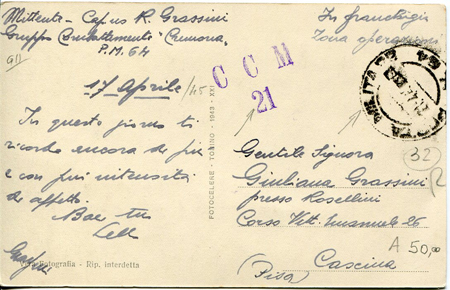 Mittente - Cap. R. Grassini
Gruppo Combattimento "Cremona"
P.M. 64
17 Aprile /45
In questo giorno ti
ricordo ancora di più
e con più intensità
di affetto.
In franchigia
Zona operazioni
C C M
21
POSTA MILITARE
FOTOCELERE - TORINO - 1943 - XXI
Gentile Signora
Giuliana Grassini
presso Rosellini
Corso Vitt. Emanuele 26
Cascina
(Pisa)
32
A 50,00
Fotografia - Rip. interdetta